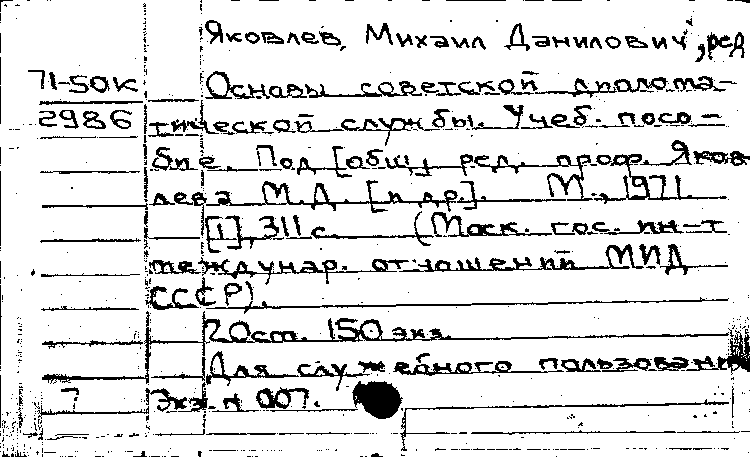 Яковлев, Михаил Данилович, ред
71-50к Основы советской диплома-
2986 тической службы. Учеб. посо-
бие. Под [общ] ред. проф. Яков-
лева М.Д. [и др]. М., 1971.
[1], 311 с. (Моск. гос. ин-т
междунар. отношений МИД
СССР).
20см. 150 экз.
Для служебного пользования
7 Экз. № 007.